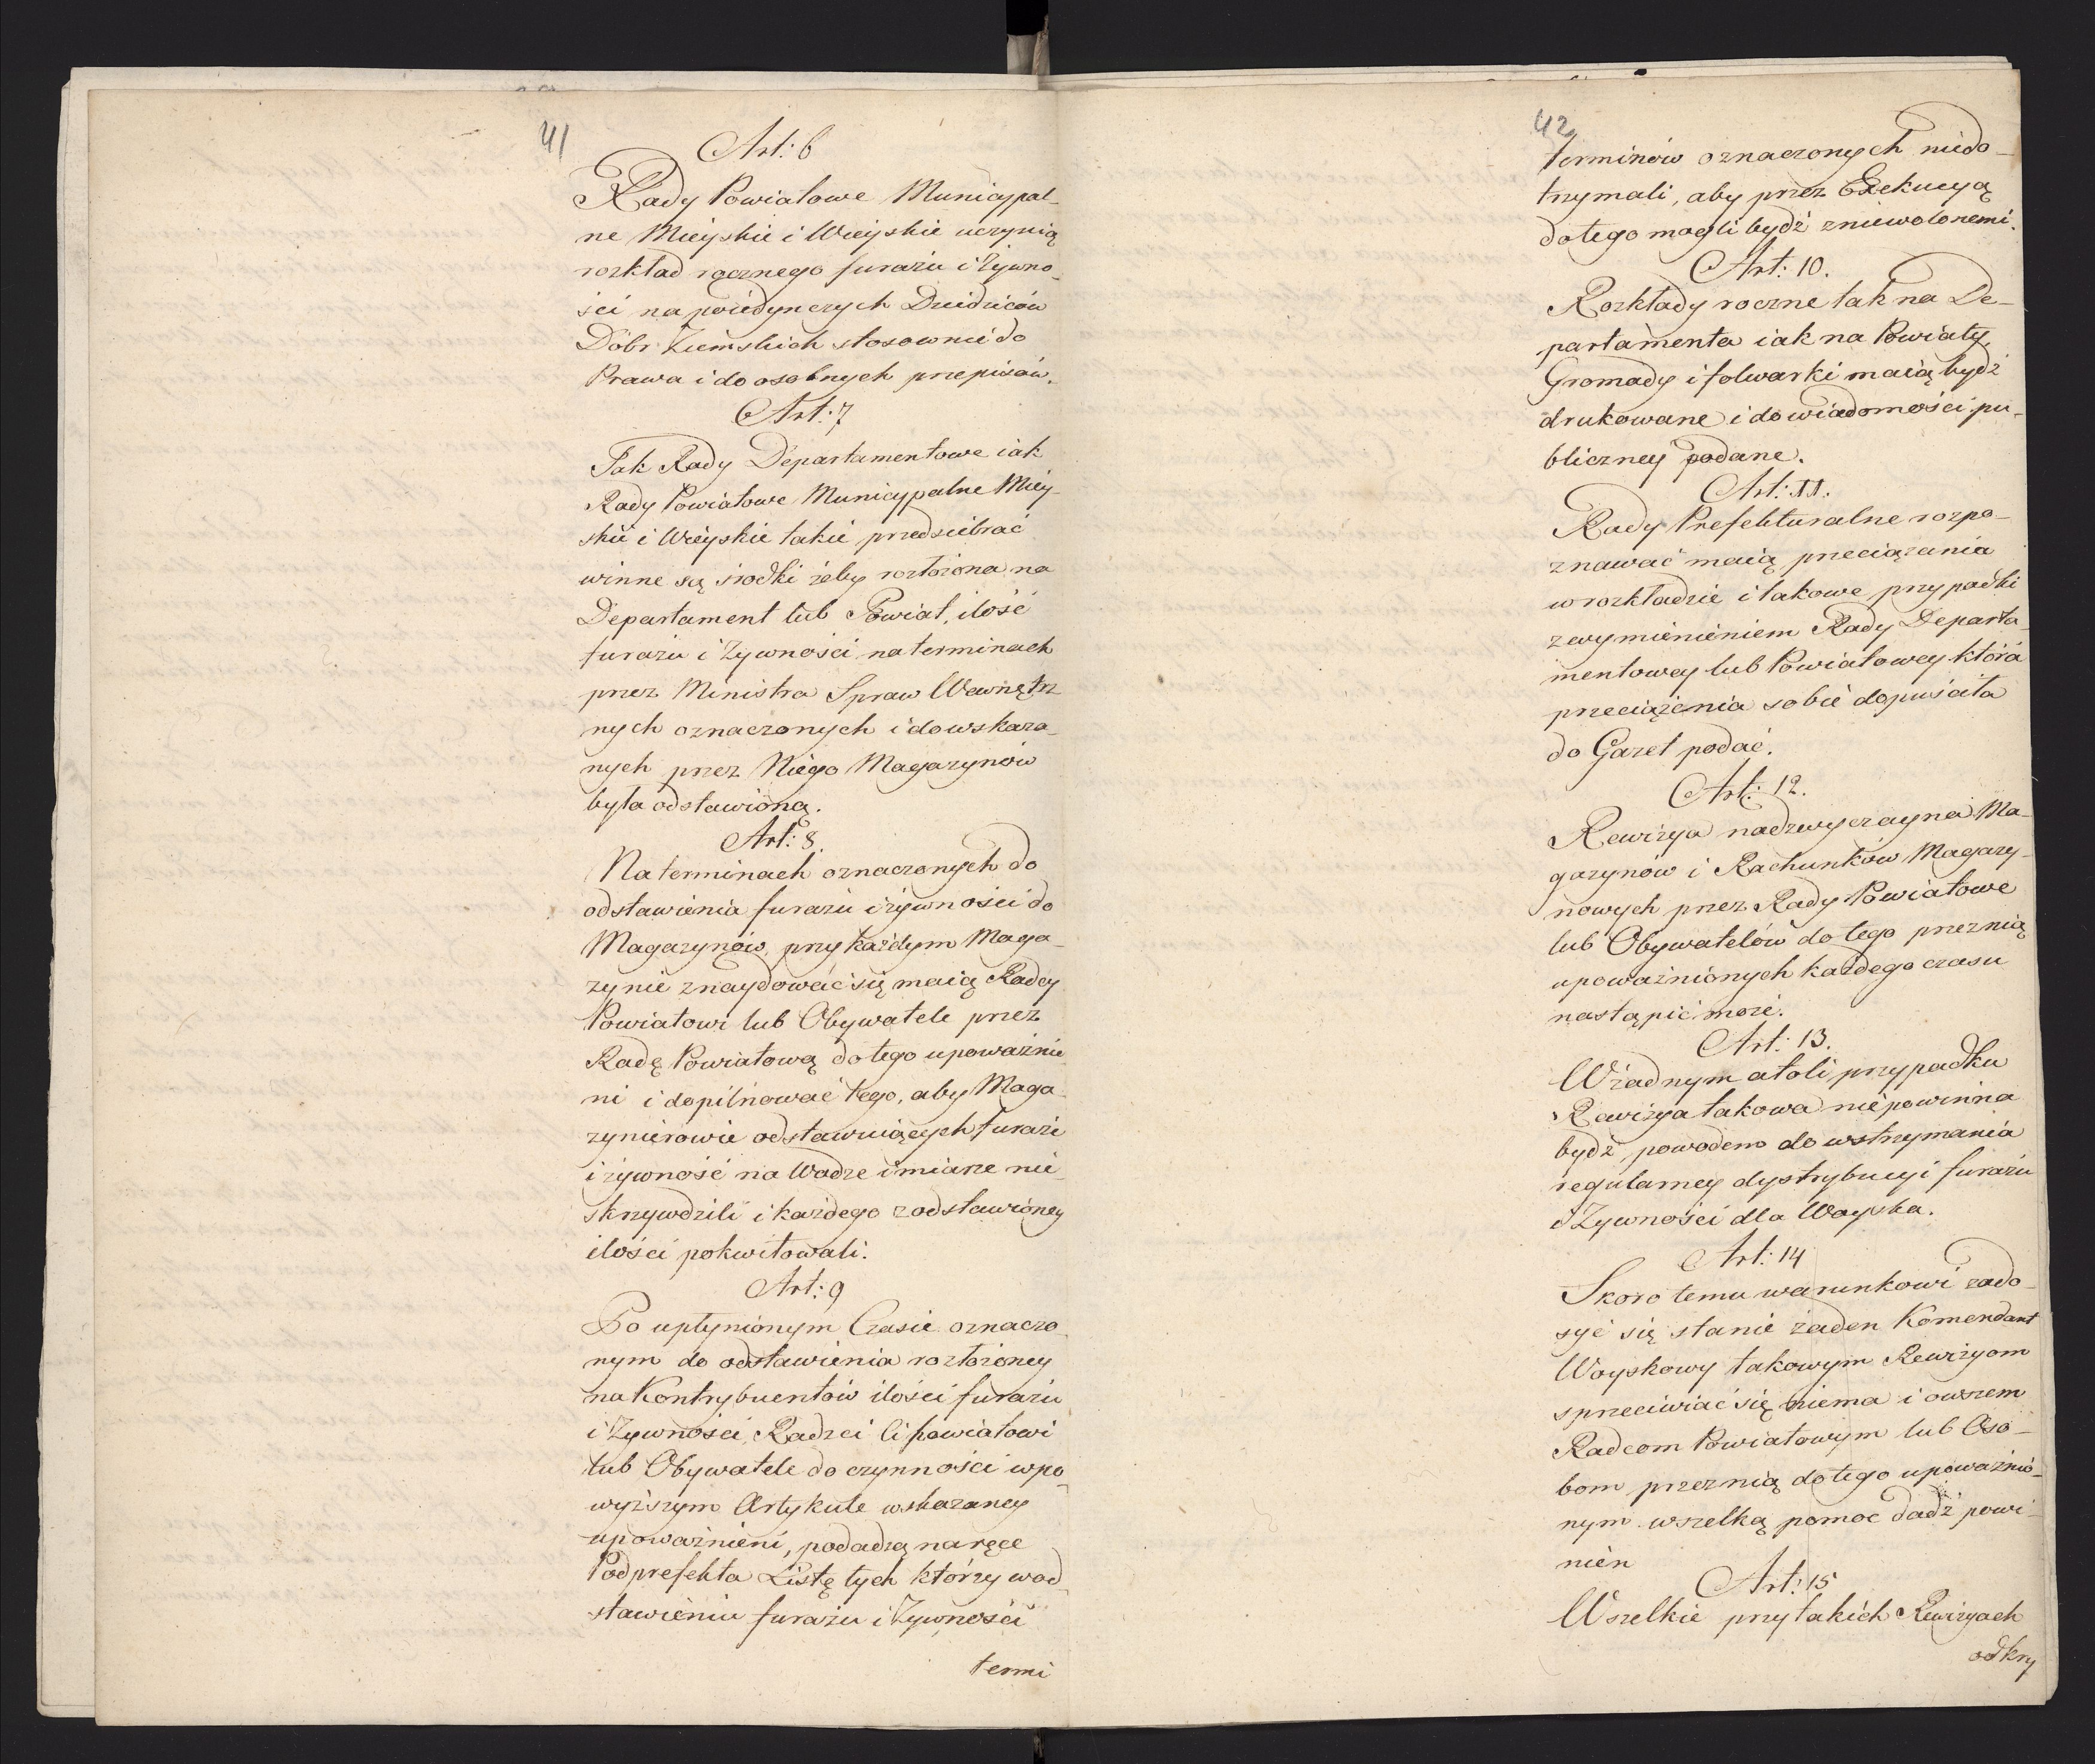 41
Art: 6
Rady Powiatowe Municypal-
ne Mieyskie i Wieyskie uczynią
rozkład rocznego furażu i żywno-
ści na poiedynczych Dziedziców
Dóbr Ziemskich stosownie do
Prawa i do osobnych przepisów.
Art: 7
Tak Rady Departamentowe iak
Rady Powiatowe Municypalne Miey-
skie i Wieyskie takie przedsiebrać
winne są środki żeby rozłożona na
Departament lub Powiat, ilość
furażu i Żywności na terminach
przez Ministra Spraw Wewnętrz
nych oznaczonych i do wskaza-
nych przez Niego Magazynów
była odstawioną.
Art: 8.
Na terminach oznaczonych do
odstawienia furażu i żywności do
Magazynów, przy każdym Maga-
zynie znaydować się maią Radcy
Powiatowi lub Obywatele przez
Radę Powiatową do tego upoważnie
ni i dopilnować tego, aby Maga-
zynierowie odstawuiących furaże
i żywność na Wadze i miarze nie
skrzywdzili i każdego z odstawioney
ilości pokwitowali.
Art: 9
Po upłynionym Czasie oznaczo-
nym do odstawienia rozłożoney
na Kontrybuentów ilości furażu
i Żywności, Radzci Ci powiatowi
lub Obywatele do czynności w po-
wyższym Artykule wskazaney
upoważnieni, podadzą na ręce
Podprefekta Listę tych którzy w od-
stawieniu furażu i Żywności
termi
42
terminów oznaczonych niedo-
trzymali, aby przez Exekucyą
do tego mogli bydź zniewolonemi.
Art: 10.
Rozkłady roczne tak na De-
partamenta iak na Powiaty,
Gromady i folwarki maią bydź
drukowane i do wiadomości pu-
bliczney podane.
Art: 11.
Rady Prefekturalne rozpo-
znawać maią przeciążenia
w rozkładzie i takowe przypadki
z wymienieniem Rady Departa-
mentowey lub Powiatowey która
przeciążenia sobie dopuściła
do Gazet podać.
Art: 12.
Rewizya nadzwyczayna Ma-
gazynów i Rachunków Magazy-
nowych przez Rady Powiatowe
lub Obywatelów do tego przez nią
upoważnionych każdego czasu
nastąpić może.
Art: 13.
W żadnym atoli przypadku
Rewizya takowa nie powinna
bydź powodem do wstrzymania
regularney dystrybucyi furażu
i Żywności dla Woyska.
Art: 14
Skoro temu warunkowi zado-
syć się stanie żaden Komendant
Woyskowy takowym Rewizyom
sprzeciwiać się niema i owszem
Radcom Powiatowym lub Oso-
bom przez nią do tego upoważnio-
nym wszelką pomoc dadź powi-
nien
Art: 15
Wszelkie przy takich Rewizyach
odkry